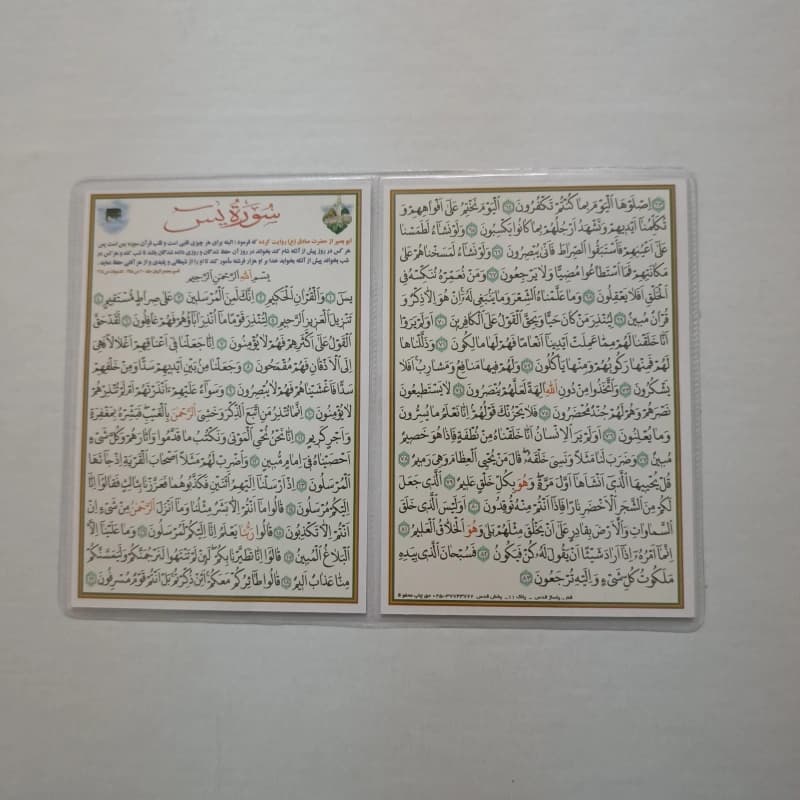 سورة يس
ابو بصیر از حضرت صادق (ع) روایت کرده که فرمود : البته برای هر چیزی قلبی است و قلب قرآن سوره یس است پس
هر کس در روز پیش از آنکه شام کند بخواند در روز آن حفظ شدگان و روزی داده شدگان باشد تا شب کند و هر کس در
شب بخواند پیش از آنکه بخوابد خدا بر او هزار فرشته مأمور کند تا او را از شیطانی و پلیدی و از هر آفتی حفظ نماید.
بسم الله الرحمن الرحيم
يس ١ والقران الحكيم ٢ انك لمن المرسلين ٣ على صراط مستقيم ٤
تنزيل العزيز الرحيم ٥ لتنذر قوما ما انذر اباؤهم فهم غافلون ٦ لقد حق
القول على اكثرهم فهم لا يؤمنون ٧ انا جعلنا فى اعناقهم اغلالا فهى
الى الاذقان فهم مقمحون ٨ وجعلنا من بين ايديهم سدا ومن خلفهم
سدا فاغشيناهم فهم لا يبصرون ٩ وسواء عليهم ءانذرتهم ام لم تنذرهم
لا يؤمنون ١٠ انما تنذر من اتبع الذكر وخشى الرحمن بالغيب فبشره بمغفرة
واجر كريم ١١ انا نحن نحيى الموتى ونكتب ما قدموا واثارهم وكل شىء
احصيناه فى امام مبين ١٢ واضرب لهم مثلا اصحاب القرية اذ جاءها
المرسلون ١٣ اذ ارسلنا اليهم اثنين فكذبوهما فعززنا بثالث فقالوا انا
اليكم مرسلون ١٤ قالوا ما انتم الا بشر مثلنا وما انزل الرحمن من شىء ان
انتم الا تكذبون ١٥ قالوا ربنا يعلم انا اليكم لمرسلون ١٦ وما علينا الا
البلاغ المبين ١٧ قالوا انا تطيرنا بكم لئن لم تنتهوا لنرجمنكم وليمسنكم
منا عذاب اليم ١٨ قالوا طائركم معكم ائن ذكرتم بل انتم قوم مسرفون ١٩
اصلوها اليوم بما كنتم تكفرون ٦٤ اليوم نختم على افواههم و
تكلمنا ايديهم وتشهد ارجلهم بما كانوا يكسبون ٦٥ ولو نشاء لطمسنا
على اعينهم فاستبقوا الصراط فانى يبصرون ٦٦ ولو نشاء لمسخناهم على
مكانتهم فما استطاعوا مضيا ولا يرجعون ٦٧ ومن نعمره ننكسه فى
الخلق افلا يعقلون ٦٨ وما علمناه الشعر وما ينبغى له ان هو الا ذكر و
قران مبين ٦٩ لينذر من كان حيا ويحق القول على الكافرين ٧٠ اولم يروا
انا خلقنا لهم مما عملت ايدينا انعاما فهم لها مالكون ٧١ وذللناها
لهم فمنها ركوبهم ومنها ياكلون ٧٢ ولهم فيها منافع ومشارب افلا
يشكرون ٧٣ واتخذوا من دون الله الهة لعلهم ينصرون ٧٤ لا يستطيعون
نصرهم وهم لهم جند محضرون ٧٥ فلا يحزنك قولهم انا نعلم ما يسرون
وما يعلنون ٧٦ اولم ير الانسان انا خلقناه من نطفة فاذا هو خصيم
مبين ٧٧ وضرب لنا مثلا ونسى خلقه قال من يحيى العظام وهى رميم ٧٨
قل يحييها الذى انشاها اول مرة وهو بكل خلق عليم ٧٩ الذى جعل
لكم من الشجر الاخضر نارا فاذا انتم منه توقدون ٨٠ اوليس الذى خلق
السماوات والارض بقادر على ان يخلق مثلهم بلى وهو الخلاق العليم ٨١
انما امره اذا اراد شيئا ان يقول له كن فيكون ٨٢ فسبحان الذى بيده
ملكوت كل شىء واليه ترجعون ٨٣
قم ـ پاساژ قدس ـ پلاک ١١ـ پخش قدس ٣٧٧٤٣٧٧٢-٠٢٥ حق چاپ محفوظ